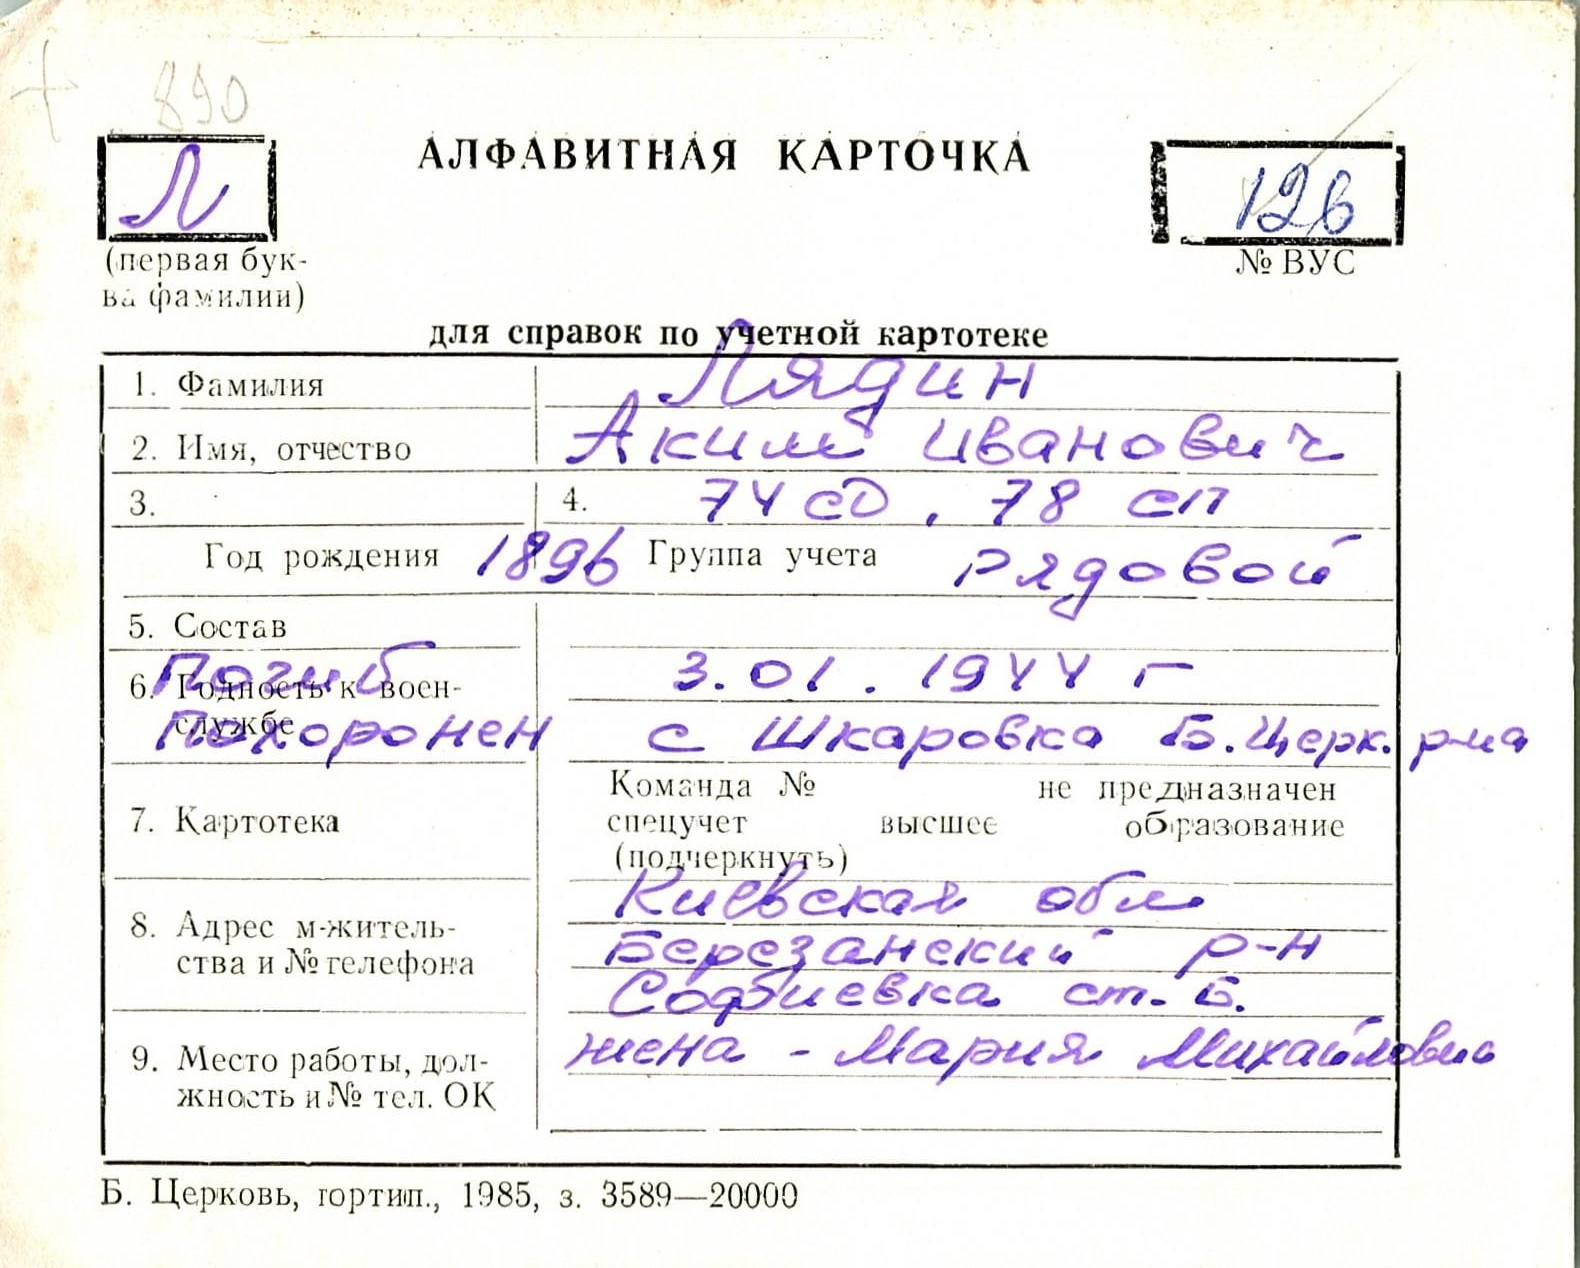 890
Л
АЛФАВИТНАЯ КАРТОЧКА
126
(первая бук-
ва фамилии)
№ ВУС
для справок по учетной картотеке
1. Фамилия Лядин
2. Имя, отчество Аким Иванович
3. 4. 74 сд, 78 сп
Год рождения 1896 Группа учета рядовой
5. Состав
Погиб 3.01.1944 г
6. Годность к воен-
службе
Похоронен с Шкаровка Б.Церк. р-на
Команда № не предназначен
7. Картотека спецучет высшее образование
(подчеркнуть)
Киевская обл
8. Адрес м-житель-
ства и № телефона
Березанский р-н
Софиевка ст. Б.
жена - Мария Михайловна
9. Место работы, дол-
жность и № тел. ОК
Б. Церковь, гортип., 1985, з. 3589—20000